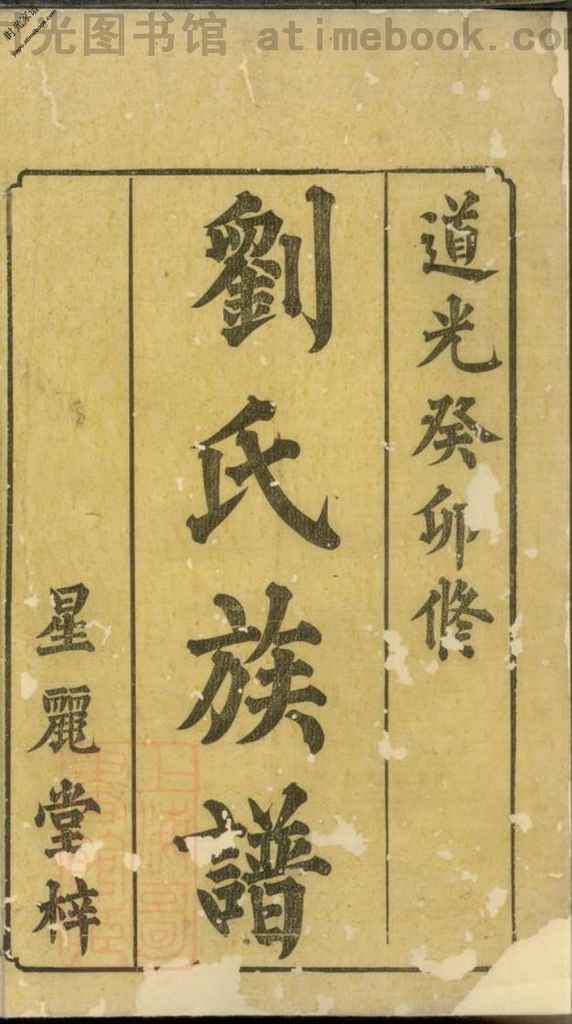 光图书馆 atimebook.com
道光癸卯修
劉氏族譜
星麗堂梓